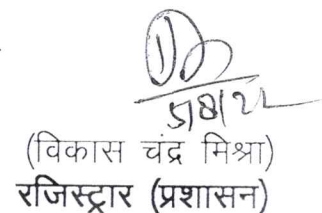 5/8/22
(विकास चंद्र मिश्रा)
रजिस्ट्रार (प्रशासन)